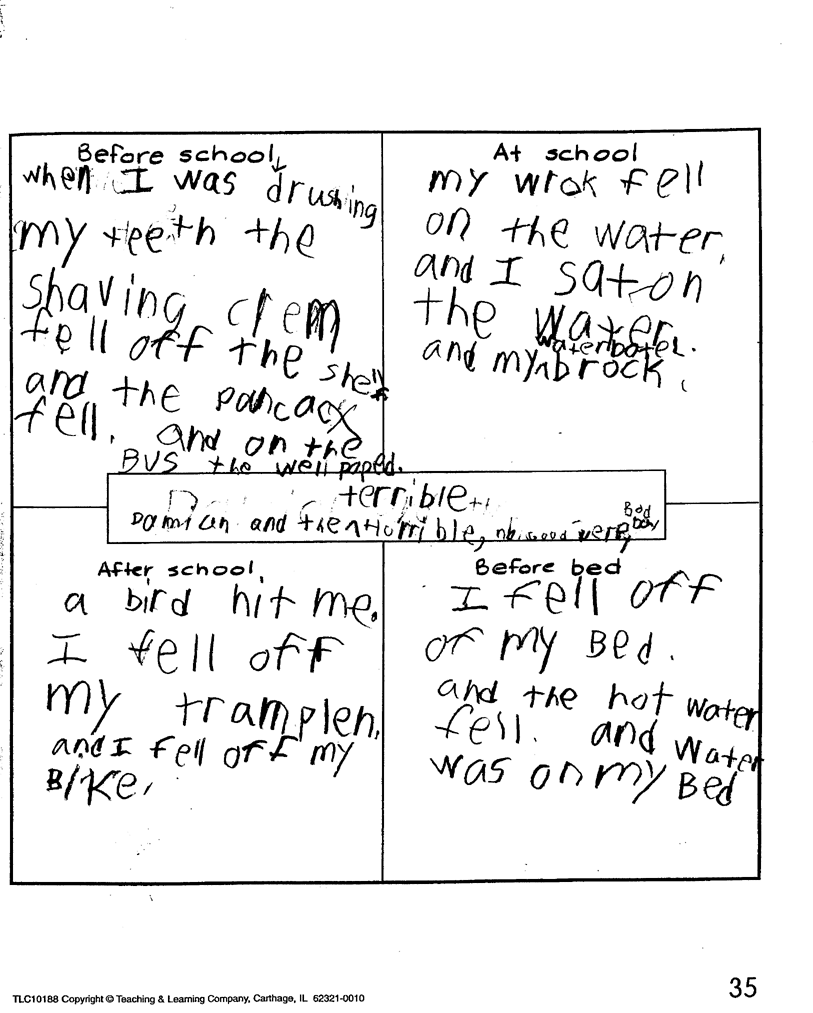 Before school,
when I was drushing
my teeth the
shaving crem
fell off the shelf
and the pancacx
fell. and on the
BUS the well poped.
At school
my wrok fell
on the water,
and I sat on
the water.
waterbotel.
and my brock.
terrible
Damian and the Horrible, no good very
Bad
day
After school,
a bird hit me.
I fell off
my tramplen.
and I fell off my
BIKe.
Before bed
I fell off
of my Bed.
and the hot water
fell. and water
was on my Bed
35
TLC10188 Copyright © Teaching & Learning Company, Carthage, IL 62321-0010